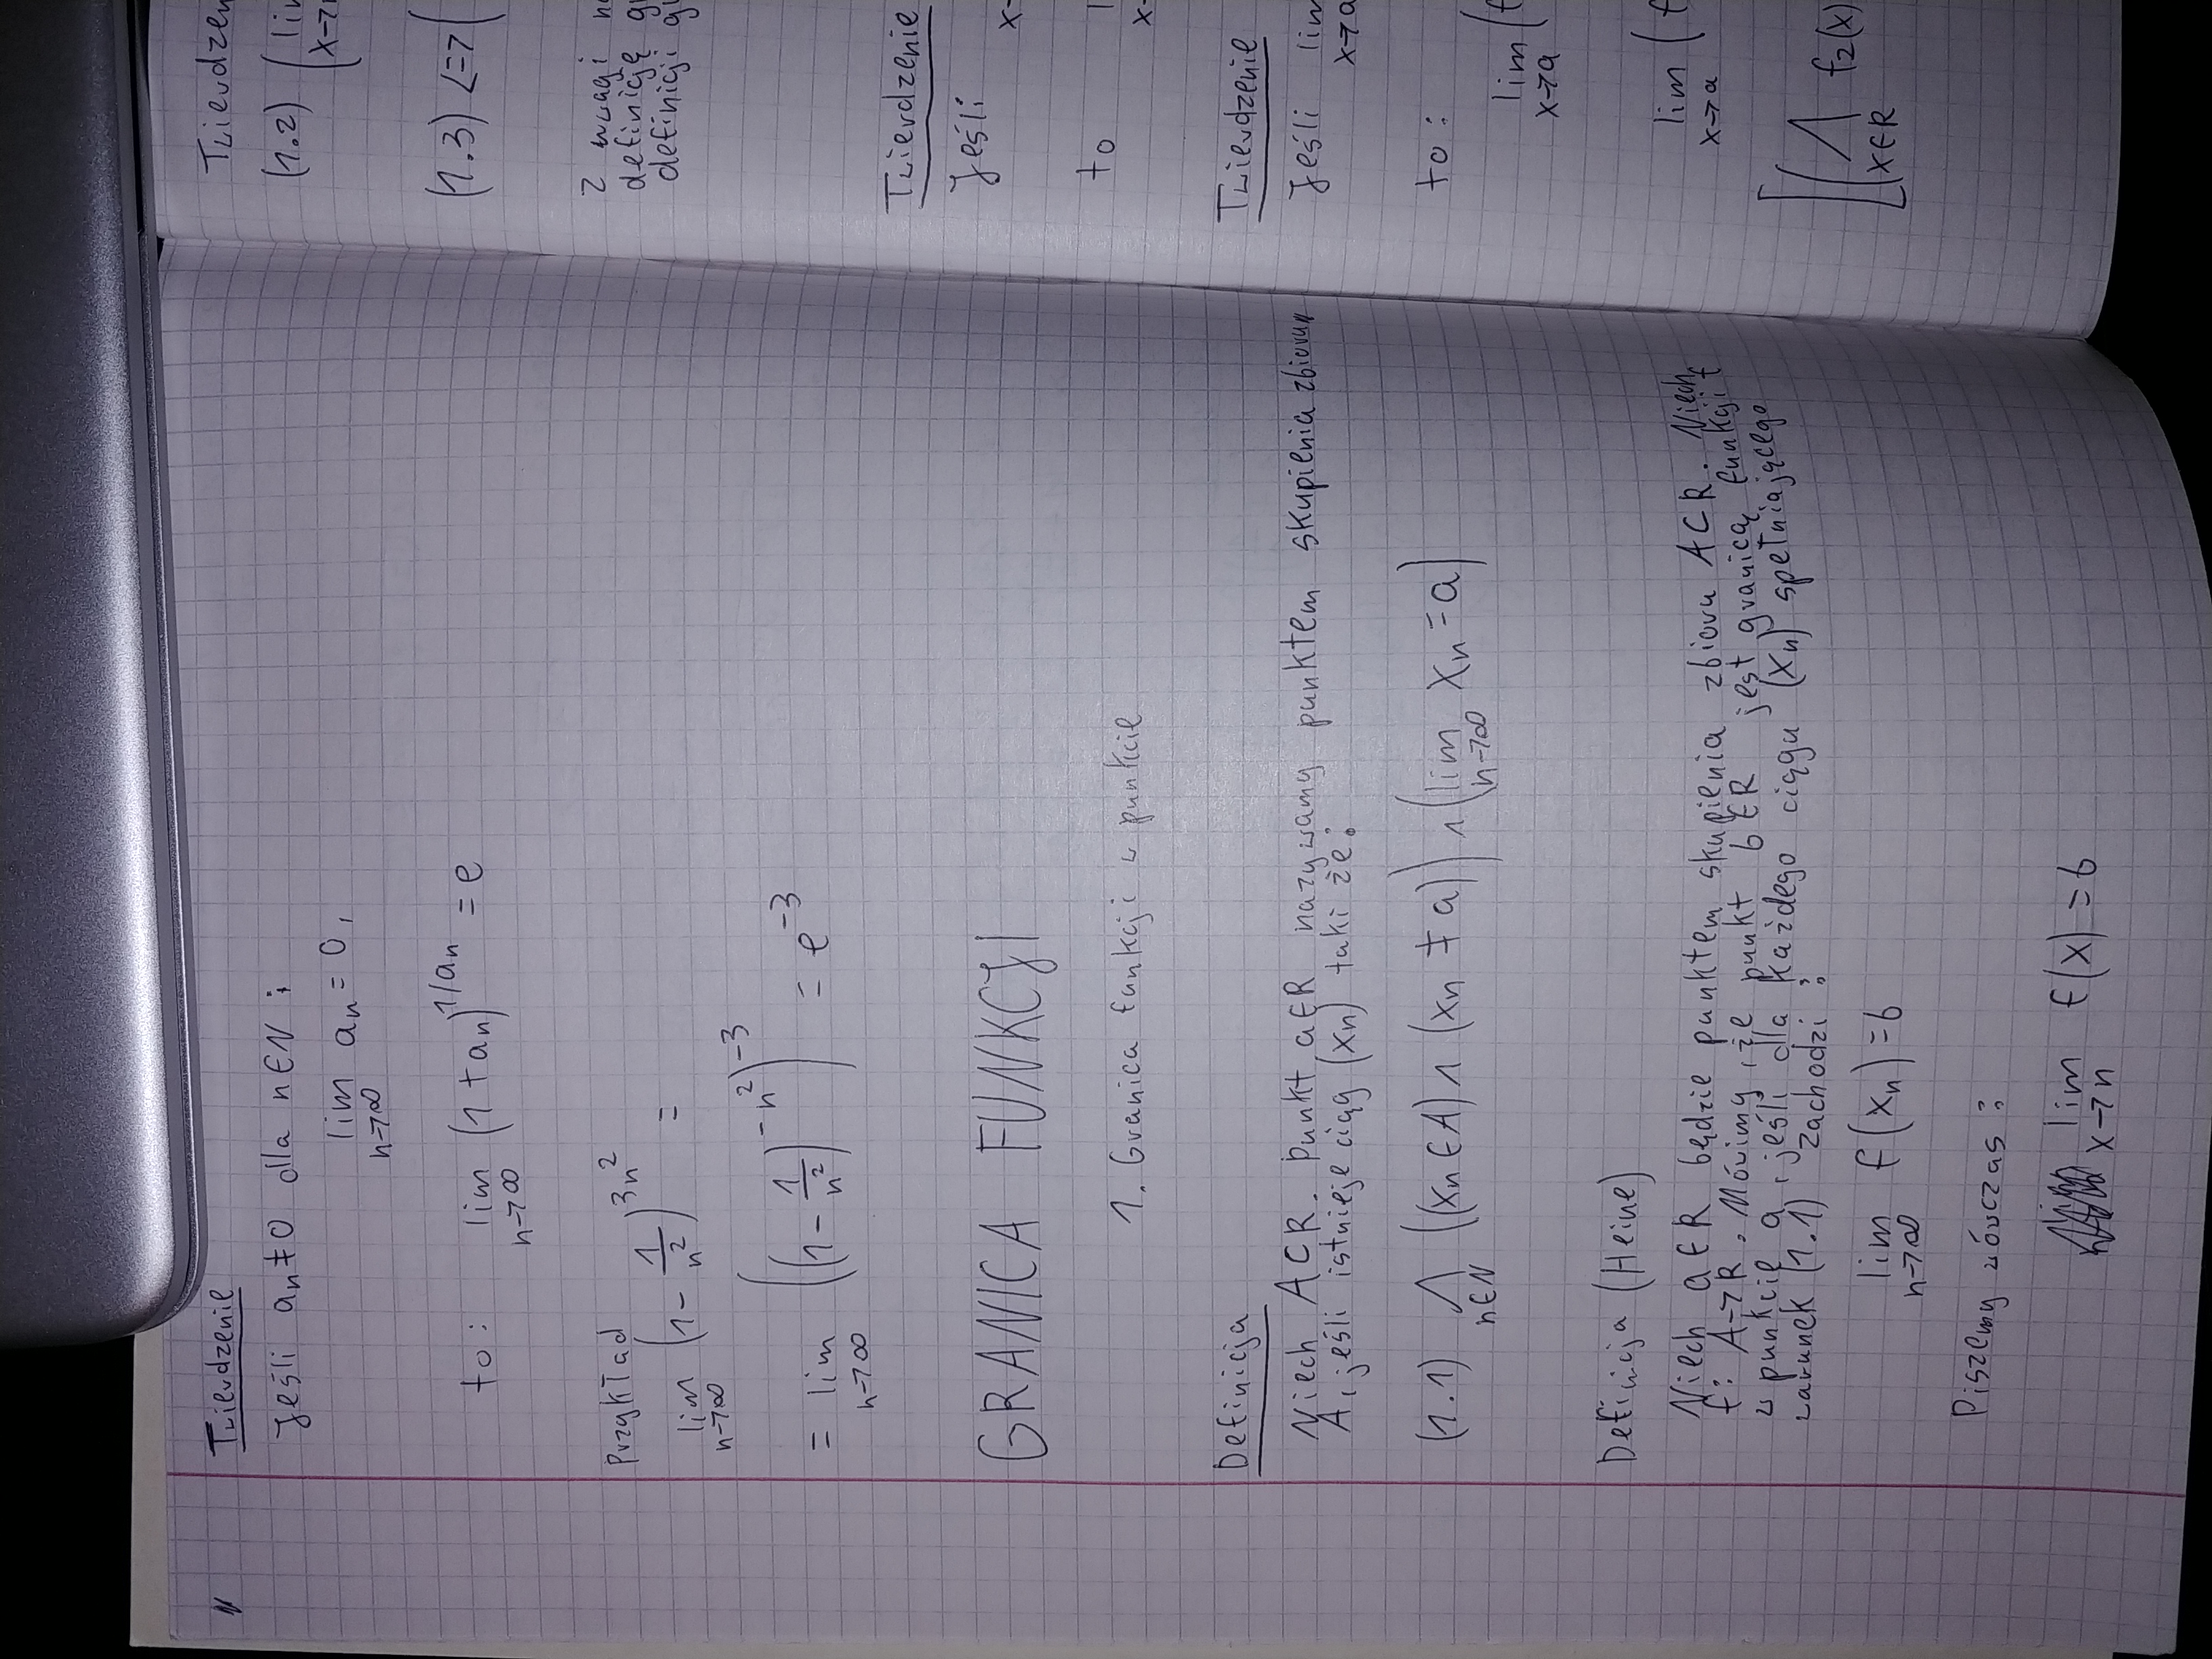 Twierdzenie
Jeśli aₙ ≠ 0 dla n∈N i
lim aₙ = 0,
n→∞
to: lim (1+aₙ)^(1/aₙ) = e
n→∞
Przykład
lim (1 - 1/n²)^(3n²) =
n→∞
= lim ((1 - 1/n²)^(-n²))^(-3) = e^(-3)
n→∞
GRANICA FUNKCJI
1. Granica funkcji w punkcie
Definicja
Niech A⊂R. Punkt a∈R nazywamy punktem skupienia zbioru
A, jeśli istnieje ciąg (xₙ) taki że:
(1.1) ⋀ ((xₙ∈A) ∧ (xₙ ≠ a)) ∧ (lim xₙ = a)
n∈N n→∞
Definicja (Heine)
Niech a∈R będzie punktem skupienia zbioru A⊂R. Niech
f: A→R. Mówimy, że punkt b∈R jest granicą funkcji f
w punkcie a, jeśli dla każdego ciągu (xₙ) spełniającego
warunek (1.1) zachodzi:
lim f(xₙ) = b
n→∞
Piszemy wówczas:
lim f(x) = b
x→n
(1.2) (
x→
(1.3) <=> (
Z uwagi
definicję
definicji
Twierdzenie
Jeśli
x→
to
x→
Twierdzenie
Jeśli lim
x→a
to:
lim (f
x→a
lim (f
x→a
[(⋀ f₂(x)
x∈R